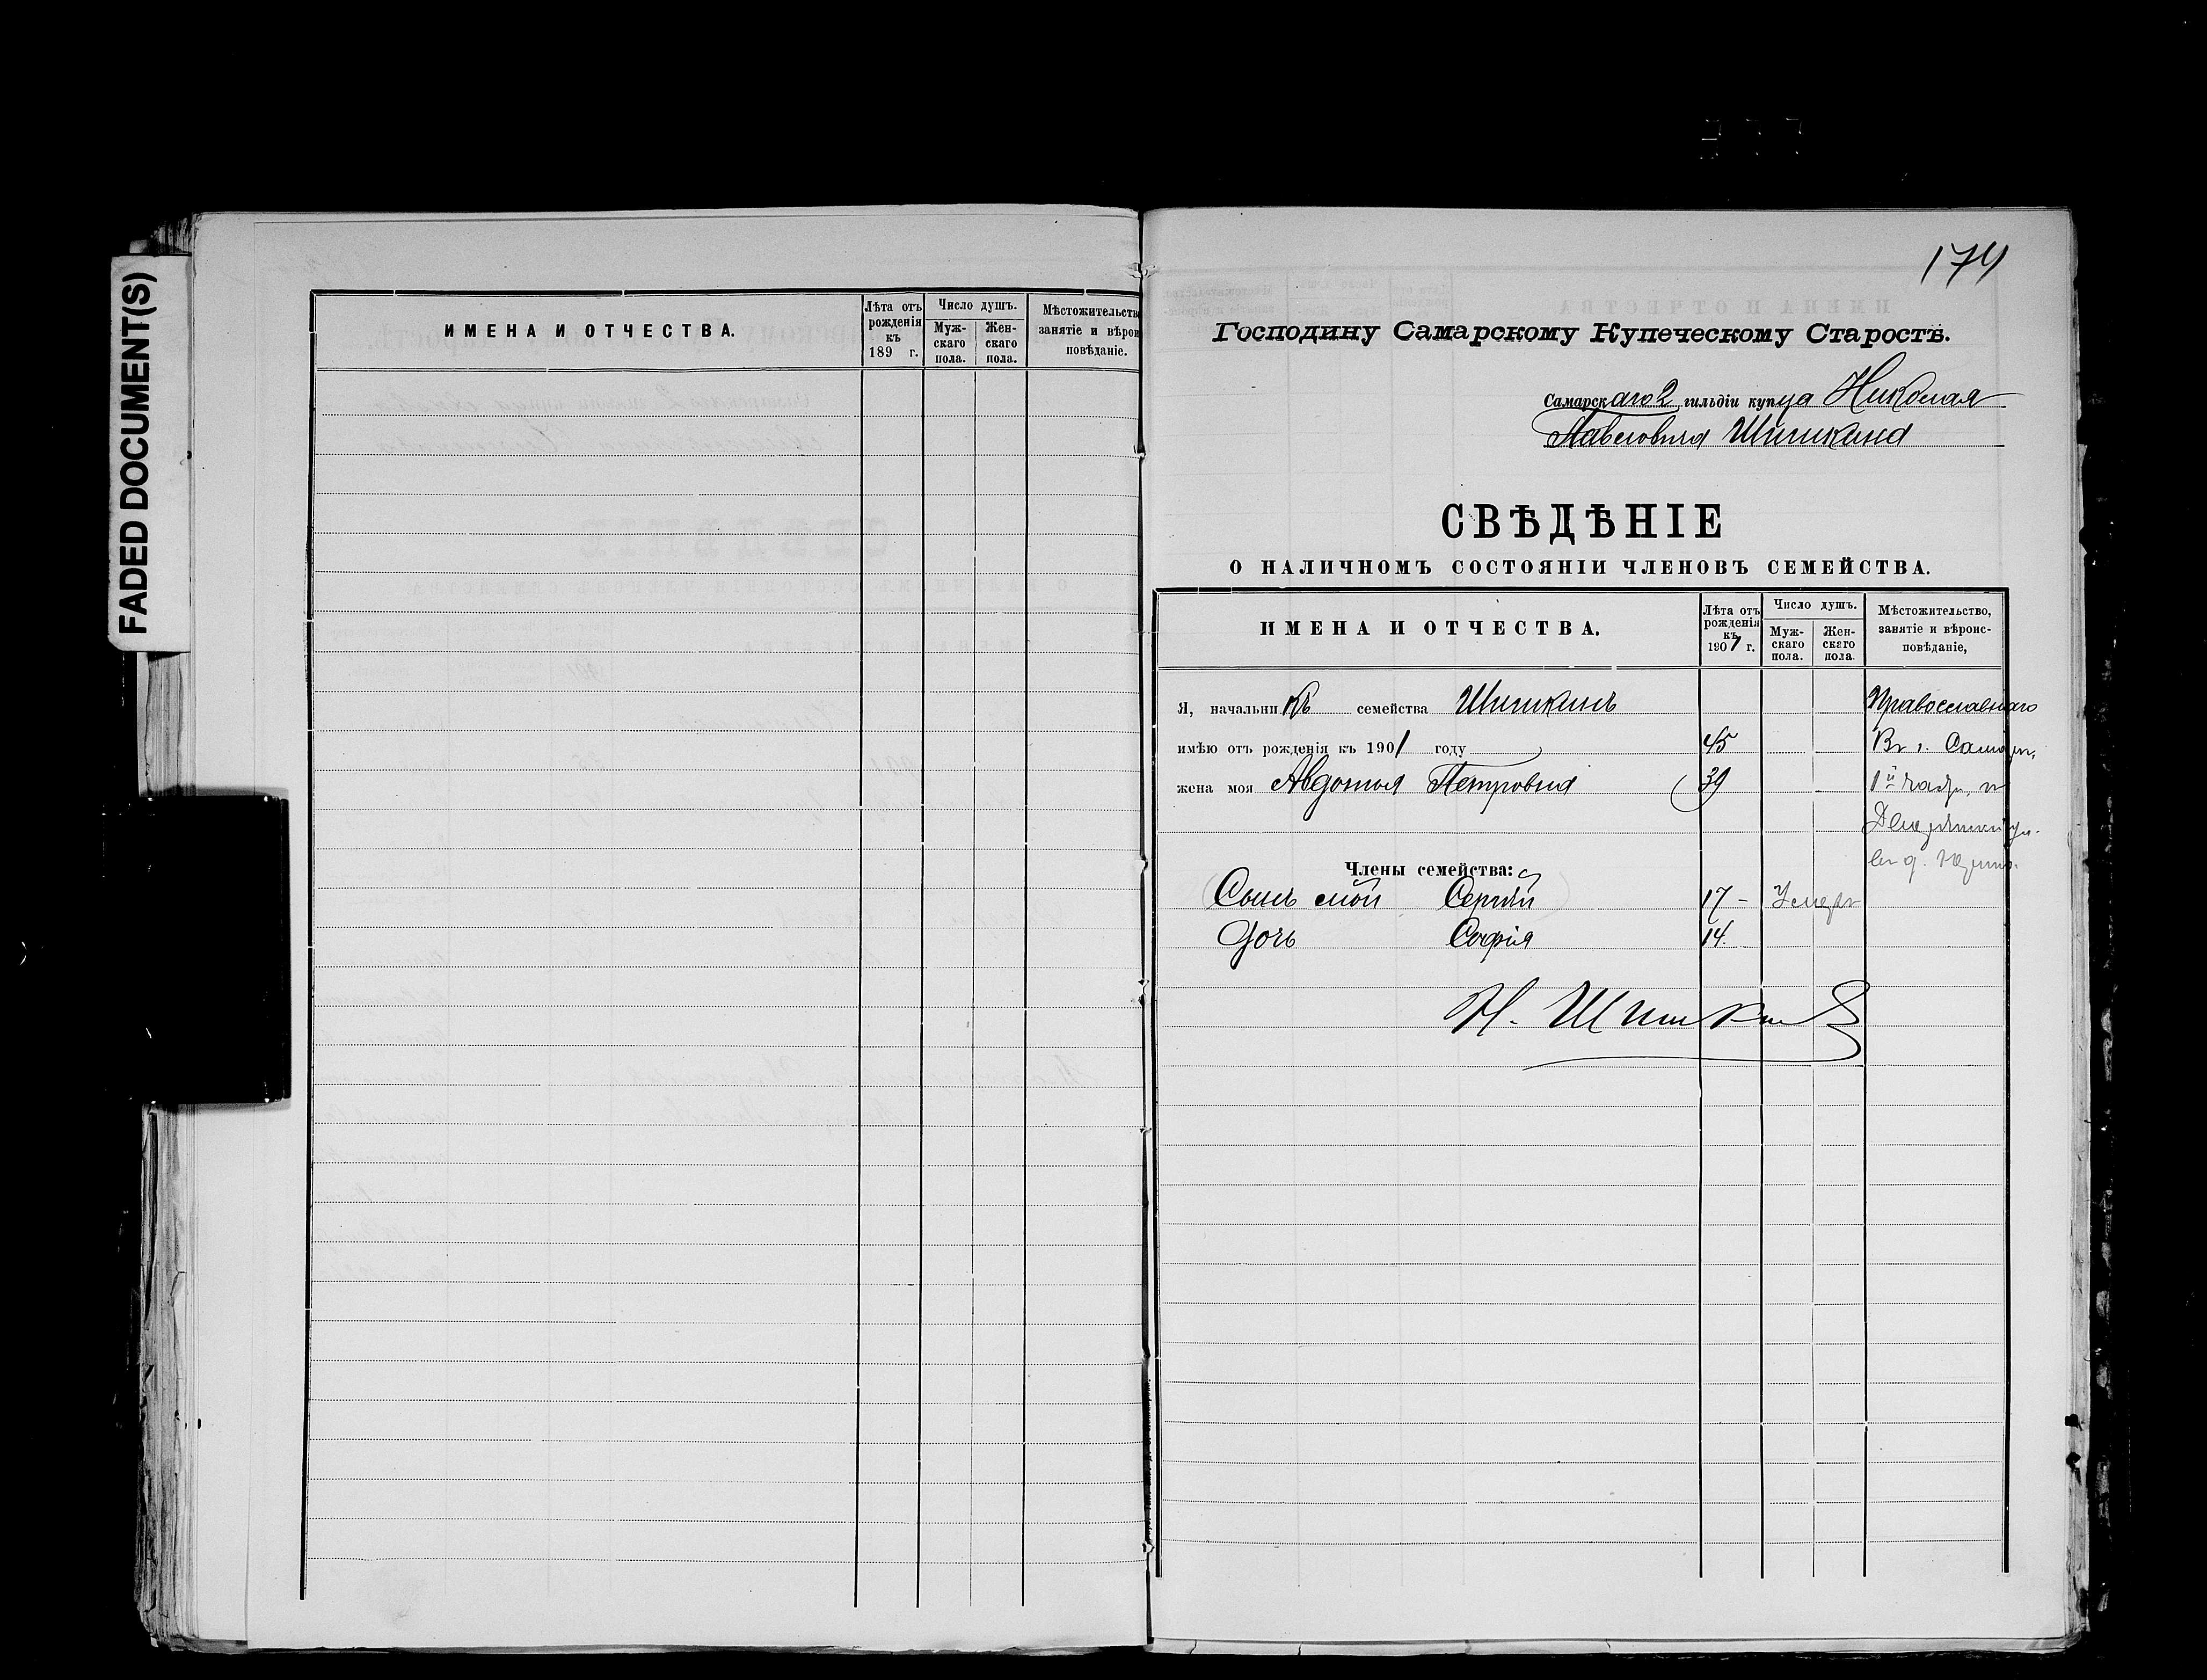 FADED DOCUMENT(S)
ИМЕНА И ОТЧЕСТВА.
Лѣта отъ рожденія къ 189 г.
Число душъ.
Муж-скаго пола.
Жен-скаго пола.
Мѣстожительство
занятіе и вѣрои
повѣданіе.
174
Господину Самарскому Купеческому Старостѣ.
Самарскаго 2 гильдіи купца Николая
Павловича Шишкина
СВѢДѢНІЕ
О НАЛИЧНОМЪ СОСТОЯНІИ ЧЛЕНОВЪ СЕМЕЙСТВА.
ИМЕНА И ОТЧЕСТВА.
Лѣта отъ рожденія къ 1901 г.
Число душъ.
Муж-скаго пола.
Жен-скаго пола.
Мѣстожительство,
занятіе и вѣроис-
повѣданіе,
Я, начальникъ семейства Шишкинъ Православнаго
имѣю отъ рожденія къ 1901 году 45 Въ г. Самарѣ,
жена моя Авдотья Петровна 39 1й части, н
Члены семейства:
Сынъ мой Сергѣй 17 - Умеръ
Дочь Софія 14.
Н. Шишкинъ